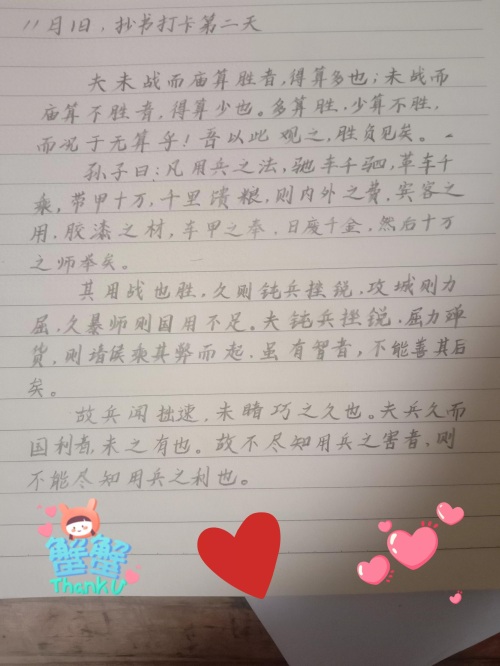 11月1日,抄书打卡第二天
夫未战而庙算胜者,得算多也;未战而
庙算不胜者,得算少也。多算胜,少算不胜,
而况于无算乎!吾以此观之,胜负见矣。
孙子曰:凡用兵之法,驰车千驷,革车千
乘,带甲十万,千里馈粮,则内外之费,宾客之
用,胶漆之材,车甲之奉,日废千金,然后十万
之师举矣。
其用战也胜,久则钝兵挫锐,攻城则力
屈,久暴师则国用不足。夫钝兵挫锐,屈力殚
货,则诸侯乘其弊而起,虽有智者,不能善其后
矣。
故兵闻拙速,未睹巧之久也。夫兵久而
国利者,未之有也。故不尽知用兵之害者,则
不能尽知用兵之利也。
蟹蟹
Thank U